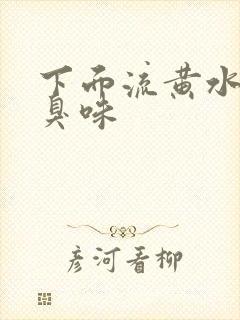 下而流黄水
臭味
彦河看柳